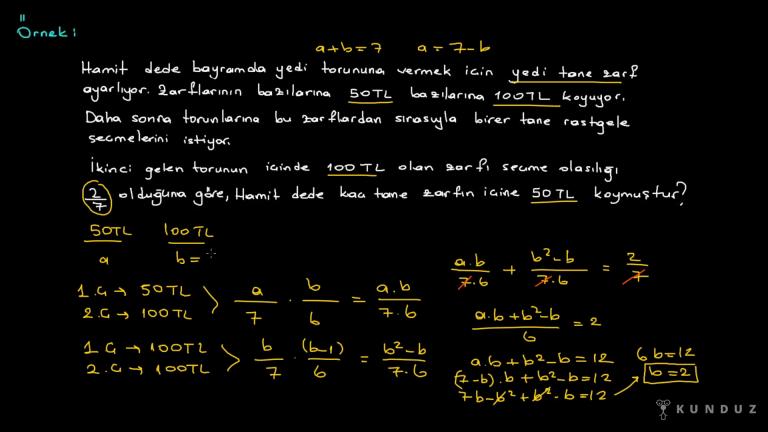 Örnek:
a+b=7 a=7-b
Hamit dede bayramda yedi torununa vermek için yedi tane zarf
ayarlıyor. Zarflarının bazılarına 50TL bazılarına 100TL koyuyor.
Daha sonra torunlarına bu zarflardan sırasıyla birer tane rastgele
seçmelerini istiyor.
İkinci gelen torunun içinde 100TL olan zarfı seçme olasılığı
2/7 olduğuna göre, Hamit dede kaç tane zarfın içine 50TL koymuştur?
50TL 100TL
a b=
1.G → 50TL
2.G → 100TL
a/7 · b/6 = a.b/7·6
1.G → 100TL
2.G → 100TL
b/7 · (b-1)/6 = b²-b/7·6
a.b/7·6 + b²-b/7·6 = 2/7
a.b+b²-b/6 = 2
a.b+b²-b=12
(7-b).b+b²-b=12
7b-b²+b²-b=12
6b=12
b=2
KUNDUZ